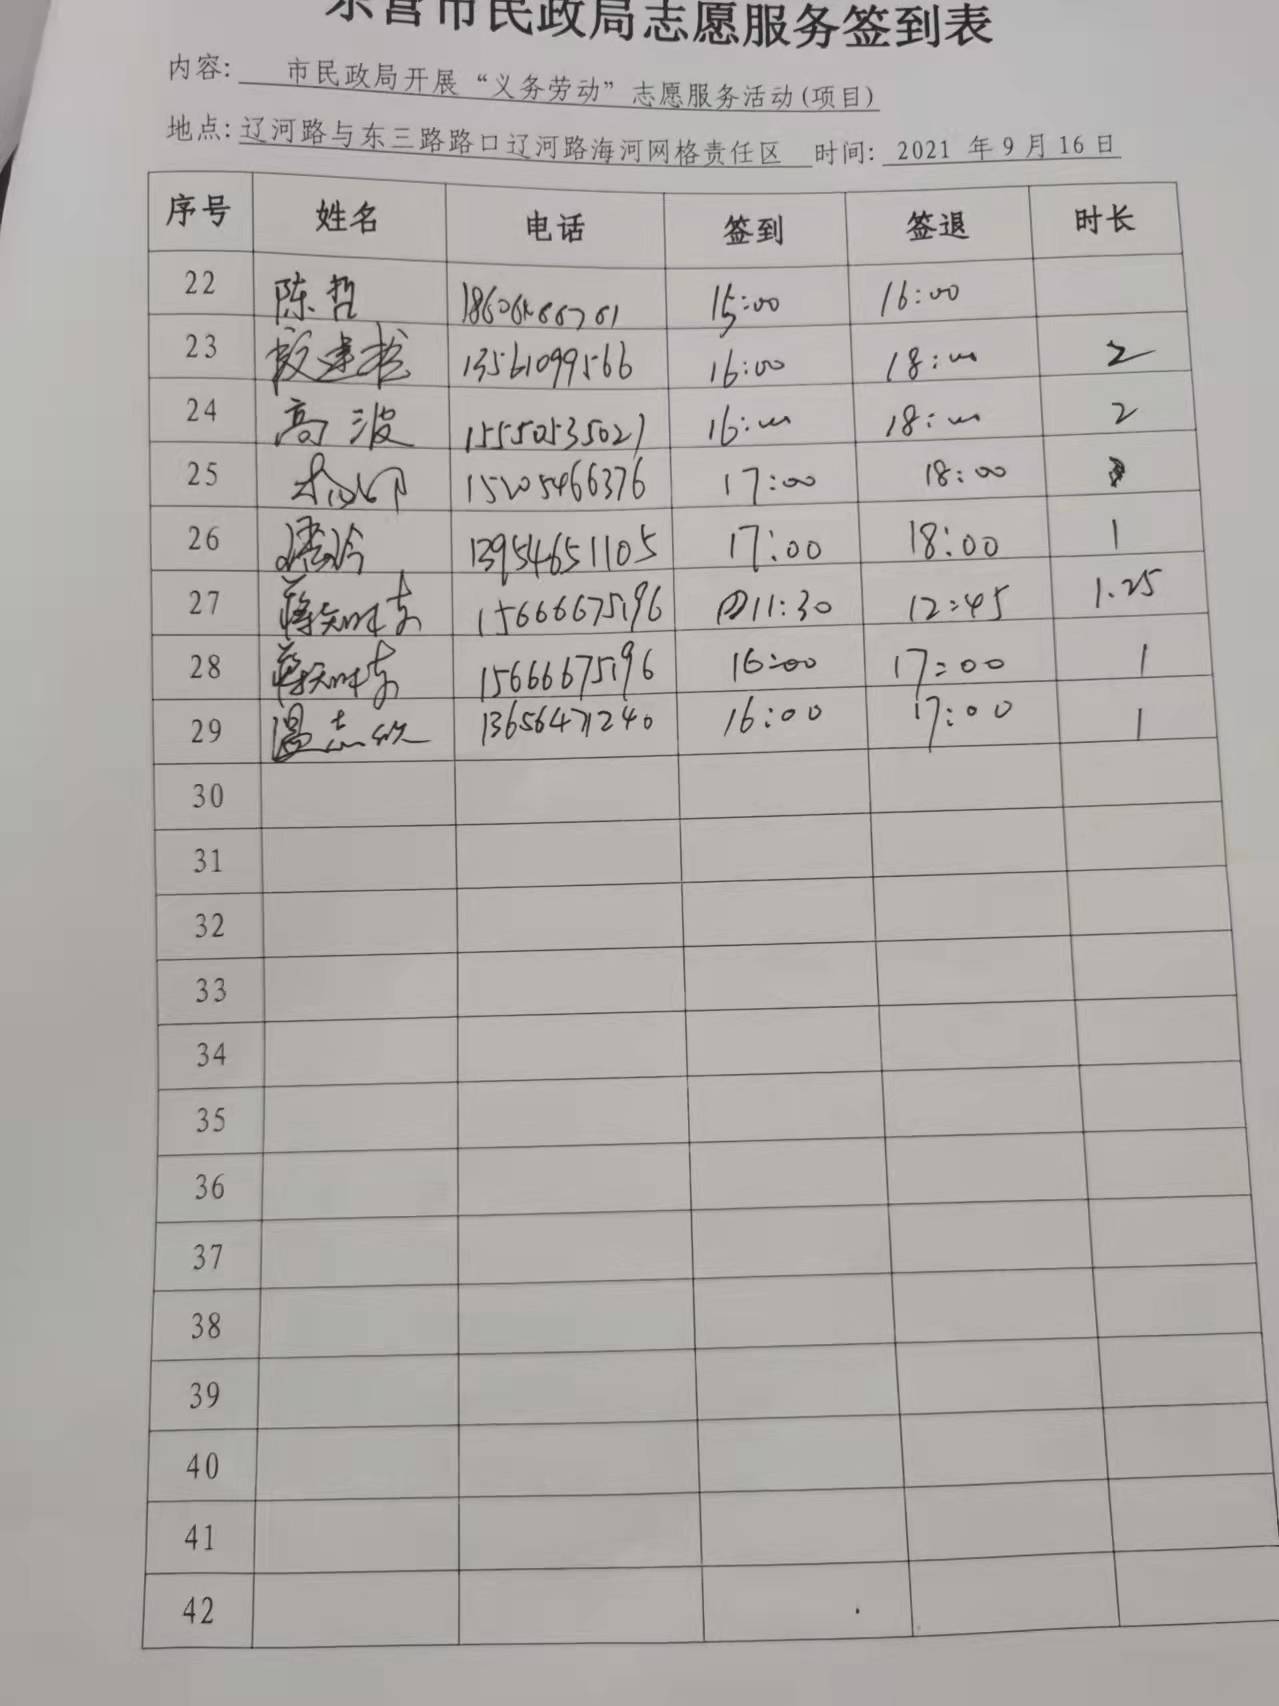 东营市民政局志愿服务签到表
内容: 市民政局开展“义务劳动”志愿服务活动(项目)
地点: 辽河路与东三路路口辽河路海河网格责任区 时间: 2021 年 9 月 16 日
序号 姓名 电话 签到 签退 时长
22 陈哲 15:00 16:00
23 13561099566 16:00 18:00 2
24 高波 15550535027 16:00 18:00 2
25 15205466376 17:00 18:00
26 13954651105 17:00 18:00 1
27 15666675196 11:30 12:45 1.25
28 15666675196 16:00 17:00 1
29 温志欣 13656471240 16:00 17:00 1
30
31
32
33
34
35
36
37
38
39
40
41
42